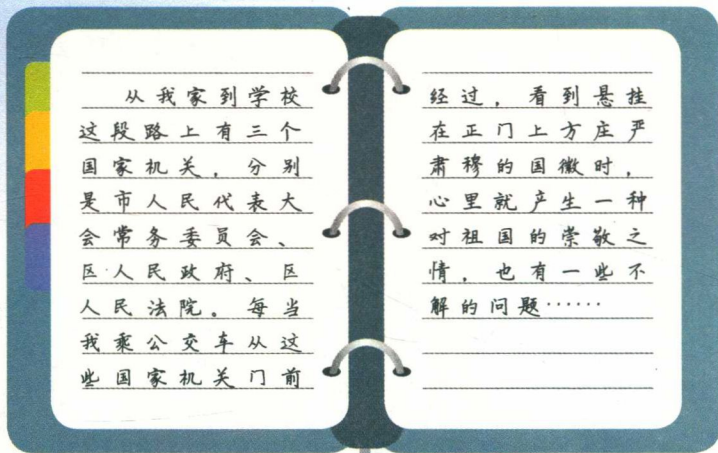 从我家到学校
这段路上有三个
国家机关，分别
是市人民代表大
会常务委员会、
区人民政府、区
人民法院。每当
我乘公交车从这
些国家机关门前
经过，看到悬挂
在正门上方庄严
肃穆的国徽时，
心里就产生一种
对祖国的崇敬之
情，也有一些不
解的问题……